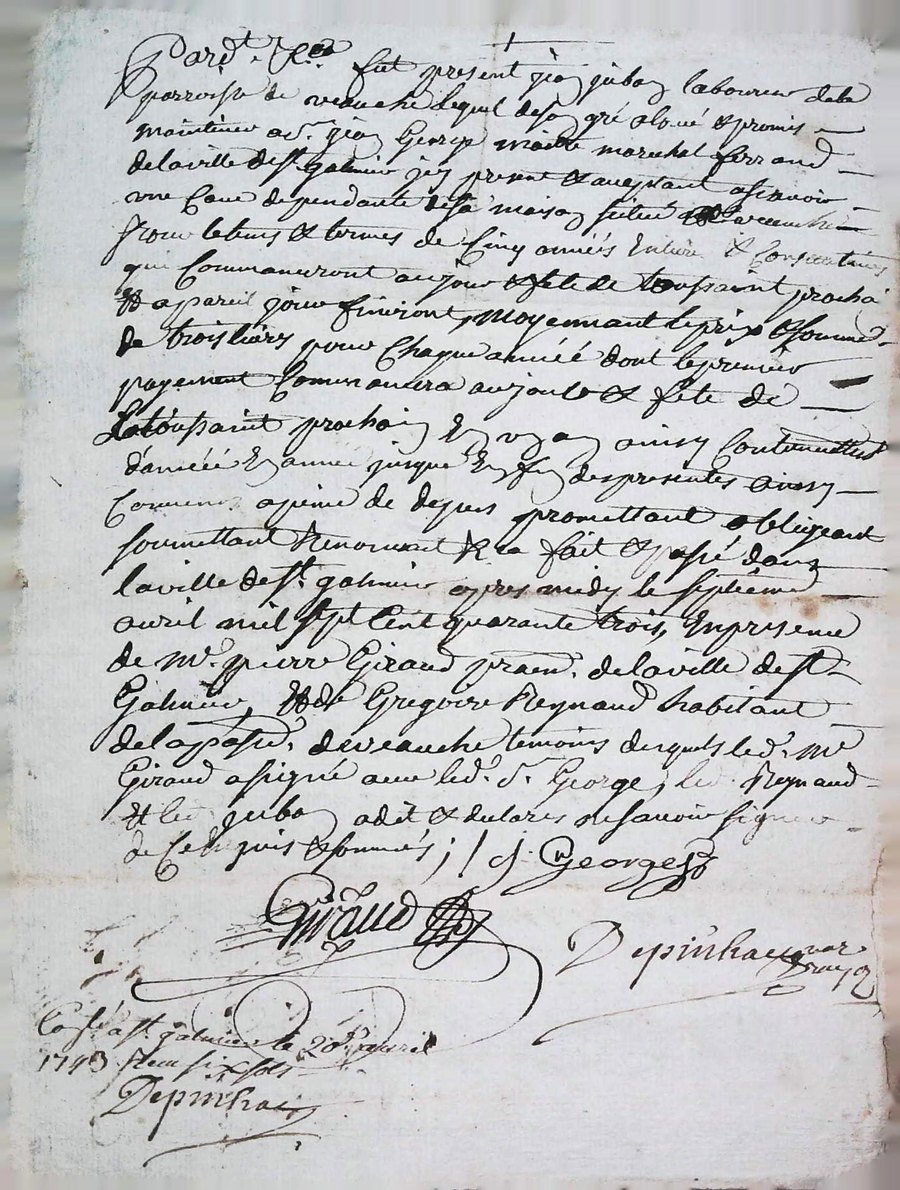 Pard.t &ca fut present jean juban laboureur dela
parroisse de veauche lequel deson gré aloué & promis
maintenir a s.r jean George maitre marechal ferrand
delaville de st. galmier jcy present & aceptant asçavoir
une Cave dependante desa maison scitué a veauche
pour letems & termes de Cinq années Entiere & Consecutives
qui Commanceront aujour & fete de toussaint prochai
& apareil jour finiront, moyennant leprix & somme
de trois livres pour Chaque année dont lepremier
payement Commancera aujour & fete de
Latoussaint prochain En ainsy Continuellent
d'année En année jusque En fin despresentes ainsy
Convenu apeine de depens promettant obligeant
soumettant Renonceant &ca fait & passé dans
laville de st. galmier apres midy le septieme
avril mil sept Cent quarante trois, En presence
de m.e pierre Giraud pratn. delaville de st.
Galmier, & de Gregoire Reynaud habitant
delapasse. deveauche temoins desquels led. m.e
Giraud asigné avec led. s.r George, led. Reynaud
& led juban adit & declares nesavoir signer
de Ce Requis & sommés ; / j. George
Giraud
Depinhac
Conlé a st. galmier le 20 avril
1743 Reçu six sols
Depinhac